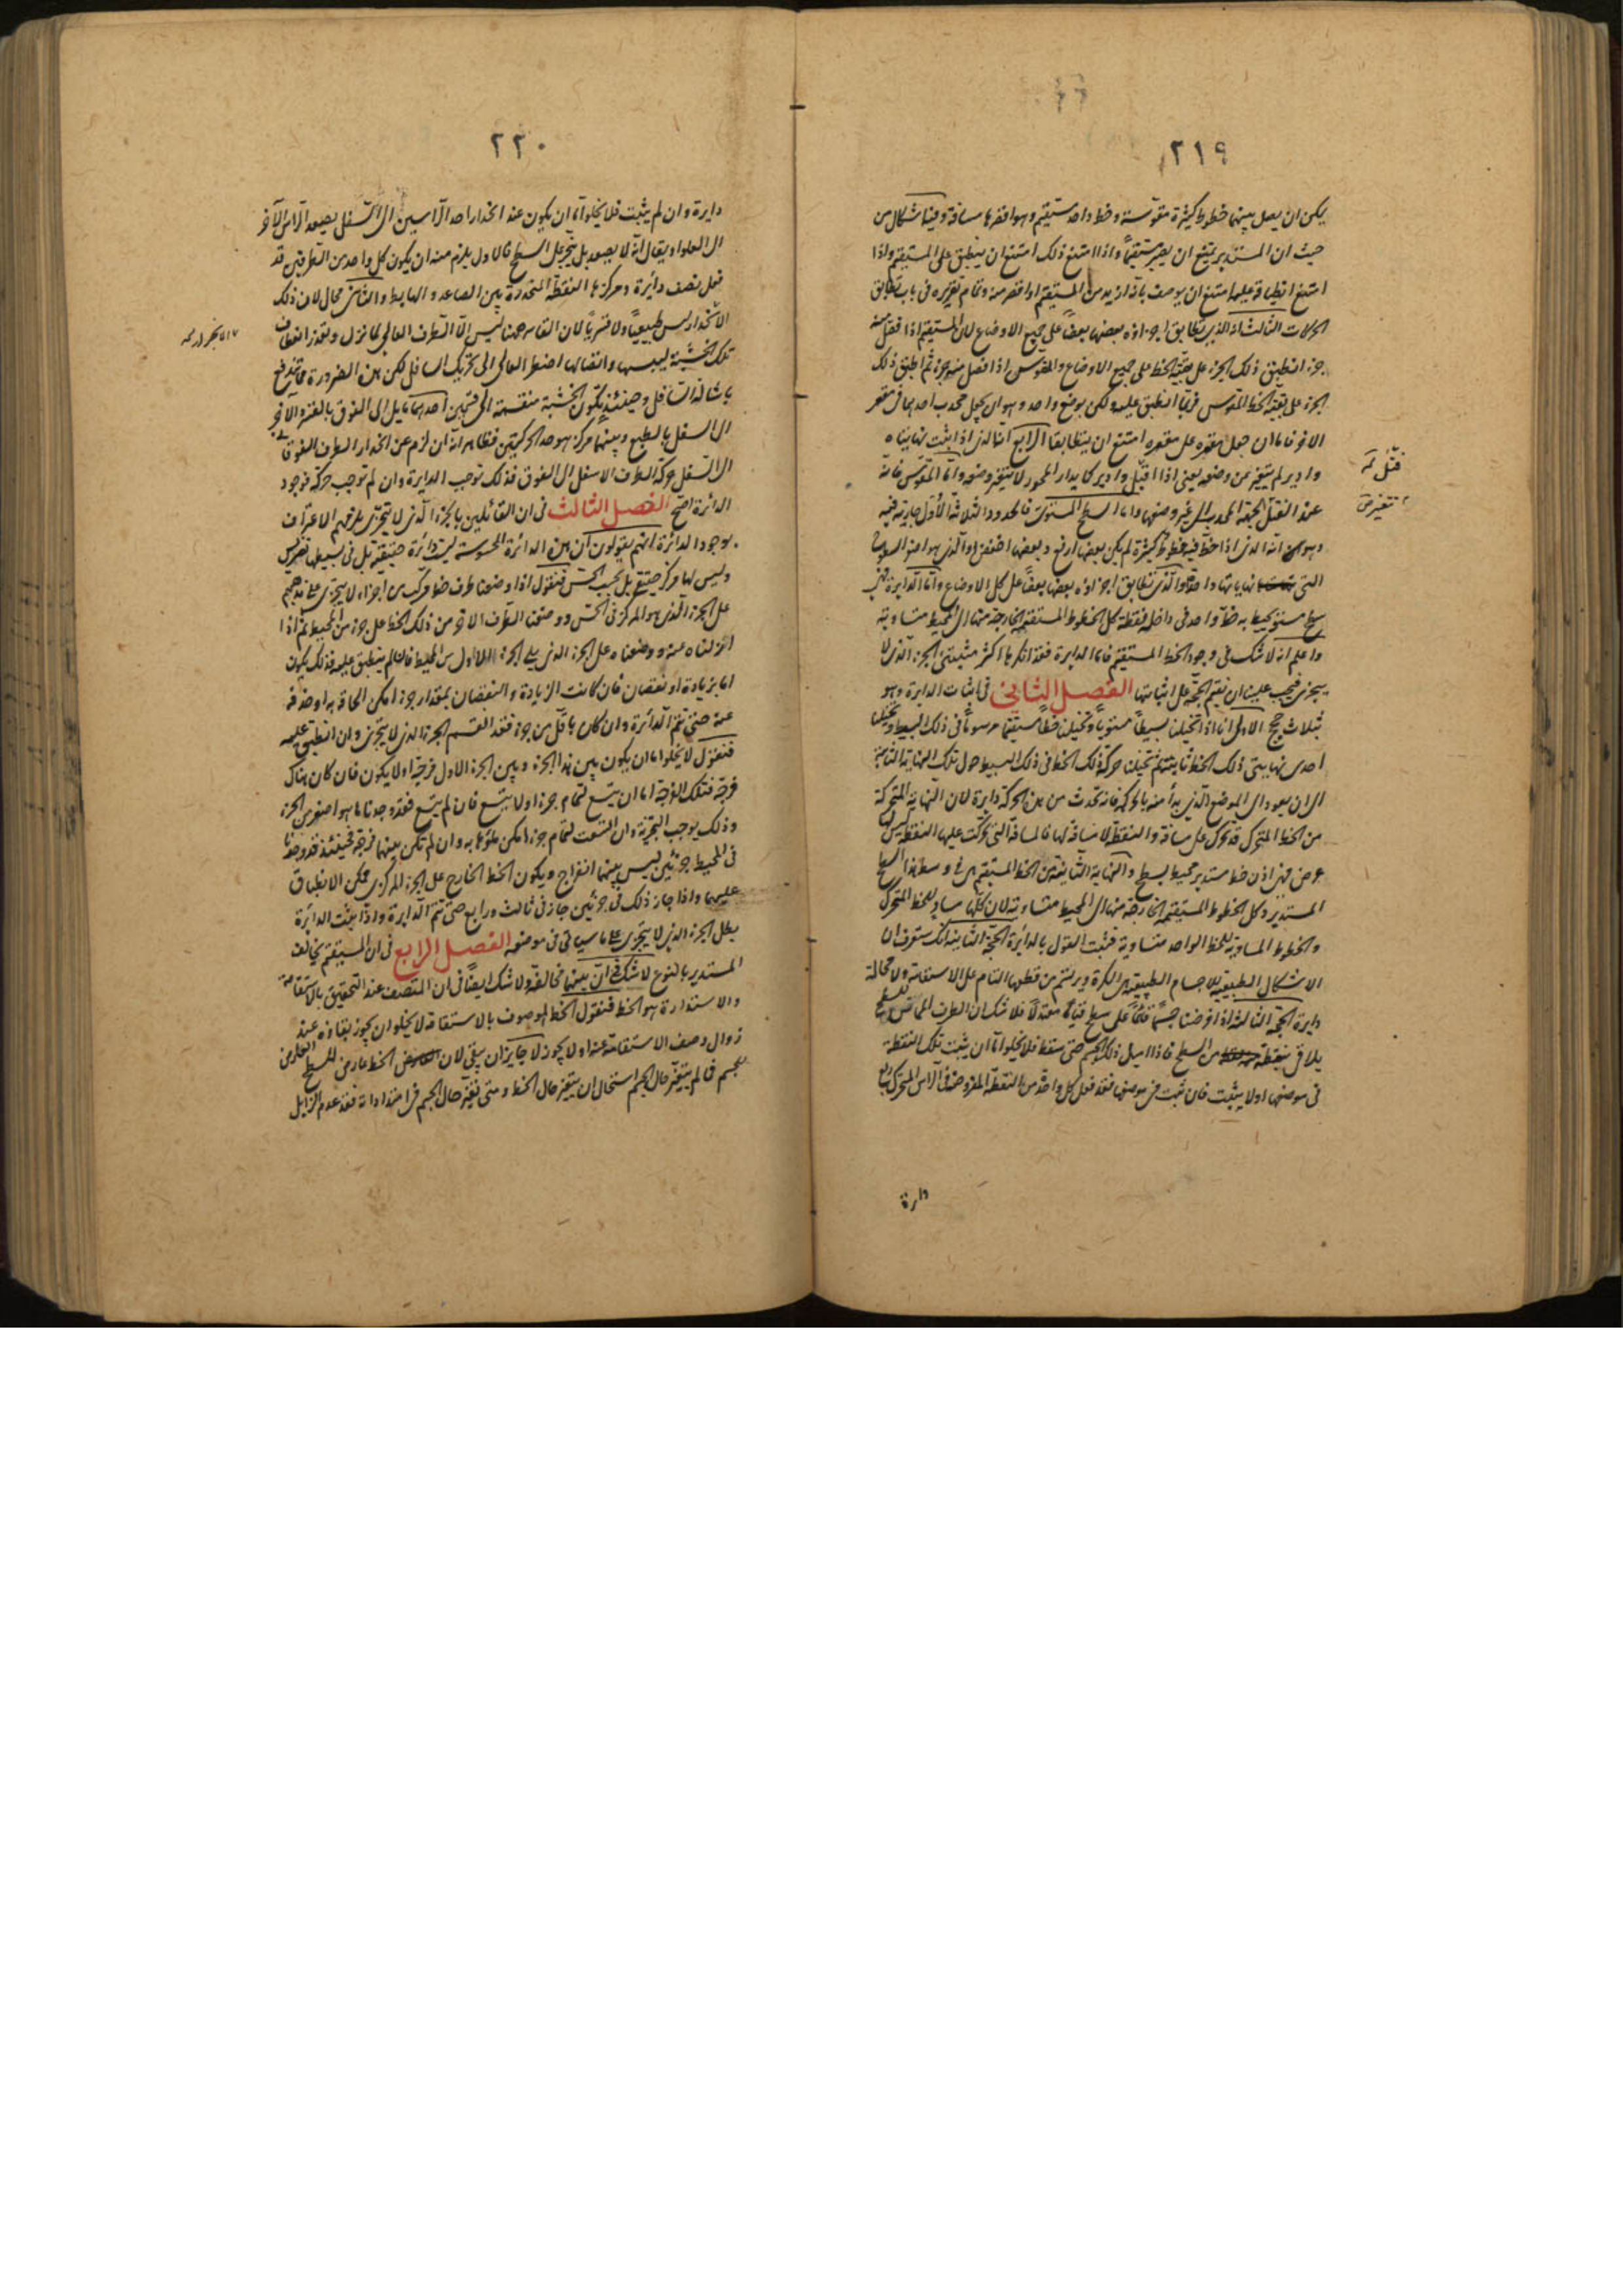 ٢١٩
يمكن ان يصل بينهما خطوط كثيرة مقوّسة وخط واحد مستقيم وهو اقصرها مسافة وفيه اشكال من
حيث ان المستدير يمتنع ان يصير مستقيماً واذا امتنع ذلك امتنع ان ينطبق على المستقيم واذا
امتنع انطباقه عليه امتنع ان يوصف بانه ازيد من المستقيم او اقصر منه وتمام تقريره في باب تطابق
الحركات الثالث انه الذي يتطابق اجزاؤه بعضها بعضاً على جميع الاوضاع لان المستقيم اذا فصل منه
جزء انطبق ذلك الجزء على بقية الخط على جميع الاوضاع والمقوس اذا فصل منه جزء ثم اطبق ذلك
الجزء على بقية الخط المقوس فربما انطبق عليه ولكن بوضع واحد وهو ان يجعل محدب احدهما في مقعر
الاخر فاما ان جعل مقعره على مقعره امتنع ان يتطابقا الرابع انه الذي اذا اثبت نهايتاه
وادير لم يتغير من وضعه يعني اذا اقبل وادير كما يدار المحور لا يتغير وضعه واما المقوس فانه
فتل
عند الفتل الجهة المحدب الى غير وضعها واما السطح المستوي فالحدود الثلاثة الاول جارية فيه
تتغير
وهو انه الذي اذا خط فيه خطوط كثيرة لم يكن بعضها ارفع وبعضها اخفض او الذي هو اصغر السطوح
التي نهاياتها واحدة والذي يتطابق اجزاؤه بعضها بعضاً على كل الاوضاع واما الدايرة فهي
سطح مستو يحيط به خط واحد في داخله نقطة كل الخطوط المستقيمة الخارجة منها الى المحيط متساوية
واعلم انه لا شك في وجود الخط المستقيم فاما الدايرة فقد انكرها اكثر مثبتي الجزء الذي لا
يتجزى فيجب علينا ان نقيم الحجة على اثباتها الفصل الثاني في اثبات الدايرة وهو
بثلاث حجج الاولى انا اذا تخيلنا بسيطاً مستوياً وتخيلنا خطاً مستقيماً مرسوماً في ذلك البسيط وتخيلنا
احدى نهايتي ذلك الخط ثابتة ثم تخيلنا حركة ذلك الخط في ذلك البسيط حول تلك النهاية الثابتة
الى ان يعود الى الموضع الذي بدأ منه بالحركة فانه تحدث من هذه الحركة دايرة لان النهاية المتحركة
من الخط المتحرك قد تحرك على مسافة والنقطة لا مسافة لها فالمسافة التي تحركت عليها النقطة ليس لها
عرض فهي اذن خط مستدير محيط بسطح والنهاية الثابتة من الخط المستقيم هي في وسط هذا السطح
المستدير وكل الخطوط المستقيمة الخارجة منها الى المحيط متساوية لان كلها مساو للخط المتحرك
والخطوط المساوية للخط الواحد متساوية فثبت القول بالدائرة الحجة الثانية انك ستعرف ان
الاشكال الطبيعية للاجسام الطبيعية هي الكرة ويرتسم من قطعها التام على الاستقامة ولا محالة
دايرة الحجة الثالثة اذا فرضنا جسماً قائماً على سطح قياماً معتدلاً فلا شك ان الطرف المماس للسطح
يلاقي بنقطة من السطح فاذا اميل ذلك الجسم حتى سقط فلا يخلو اما ان يثبت تلك النقطة
في موضعها او لا يثبت فان ثبت في موضعها فقد فعل كل واحدة من النقطة المفروضة في الراس المتحرك ربع
دايرة
٢٢٠
دايرة وان لم يثبت فلا يخلو اما ان يكون عند انحدار احد الراسين الى السفل يصعد الراس الآخر
الى العلو او يقال انه لا يصعد بل ينجر على السطح فالاول يلزم منه ان يكون كل واحد من الطرفين قد
فعل نصف دائرة ومركزها النقطة المتحددة بين الصاعد والهابط والثاني محال لان ذلك
الانحدار ليس طبيعياً ولا قسرياً لان القاسر ههنا ليس الا الطرف العالي لما نزل وتعذر انعطاف
تلك الخشبة ليبسها واتصالها اضطر العالي الى تحريك السافل لكن هذه الضرورة تندفع
باشالة السافل وحينئذ تكون الخشبة منقسمة الى قسمين احدهما مايل الى الفوق بالقسر والآخر
الى السفل بالطبع وبينهما مركز هو حد الحركتين فظاهر انه ان لزم عن انحدار الطرف الفوقاني
الى السفل حركة الطرف الاسفل الى الفوق فذلك توجب الدايرة وان لم توجب حركة فوجود
الدائرة اصح الفصل الثالث في ان القائلين بالجزء الذي لا يتجزى يلزمهم الاعتراف
بوجود الدائرة انهم يقولون ان هذه الدائرة المحسوسة ليست دائرة حقيقية بل في بسيطها تضريس
وليس لها مركز حقيقي بل بحسب الحس فنقول اذا وضعنا طرف خط مركب من اجزاء لا يتجزى على مذهبهم
على الجزء الذي هو المركز في الحس ووضعنا الطرف الاخر من ذلك الخط على جزء من المحيط ثم اذا
ازلناه عنه ووضعناه على الجزء الذي يلي الجزء الاول من المحيط فان لم ينطبق عليه فذلك يكون
اما بزيادة او نقصان فان كانت الزيادة والنقصان بمقدار جزء امكن الحاقه به او حذفه
عنه حتى تتم الدائرة وان كان باقل من جزء فقد انقسم الجزء الذي لا يتجزى وان انطبق عليه
فنقول لا يخلو اما ان يكون بين هذا الجزء وبين الجزء الاول فرجة او لا يكون فان كان هناك
فرجة فتلك الفرجة اما ان تتسع لتمام جزء او لا يتسع فان لم يتسع فقد وجدنا ما هو اصغر من الجزء
وذلك يوجب التجزية وان اتسعت لتمام جزء امكن ملؤها به وان لم تكن بينهما فرجة فحينئذ قد وجدنا
في المحيط جزئين ليس بينهما انفراج ويكون الخط الخارج على الجزء المركزي ممكن الانطباق
عليهما واذا جاز ذلك في جزئين جاز في ثالث ورابع حتى تتم الدايرة واذا ثبت الدائرة
بطل الجزء الذي لا يتجزى على ما سياتي في موضعه الفصل الرابع في ان المستقيم يخالف
المستدير بالنوع لا شك في ان بينهما مخالفة ولا شك ايضاً في ان المتصف عند التحقيق بالاستقامة
والاستدارة هو الخط فنقول الخط الموصوف بالاستقامة لا يخلو ان يجوز بقاؤه عند
زوال وصف الاستقامة عنه او لا يجوز لا جايز ان يبقى لان الخط عارض للسطح العارض
للجسم فما لم يتغير حال الجسم استحال ان يتغير حال الخط ومتى تغير حال الجسم في امتداداته فقد عدم الزايل